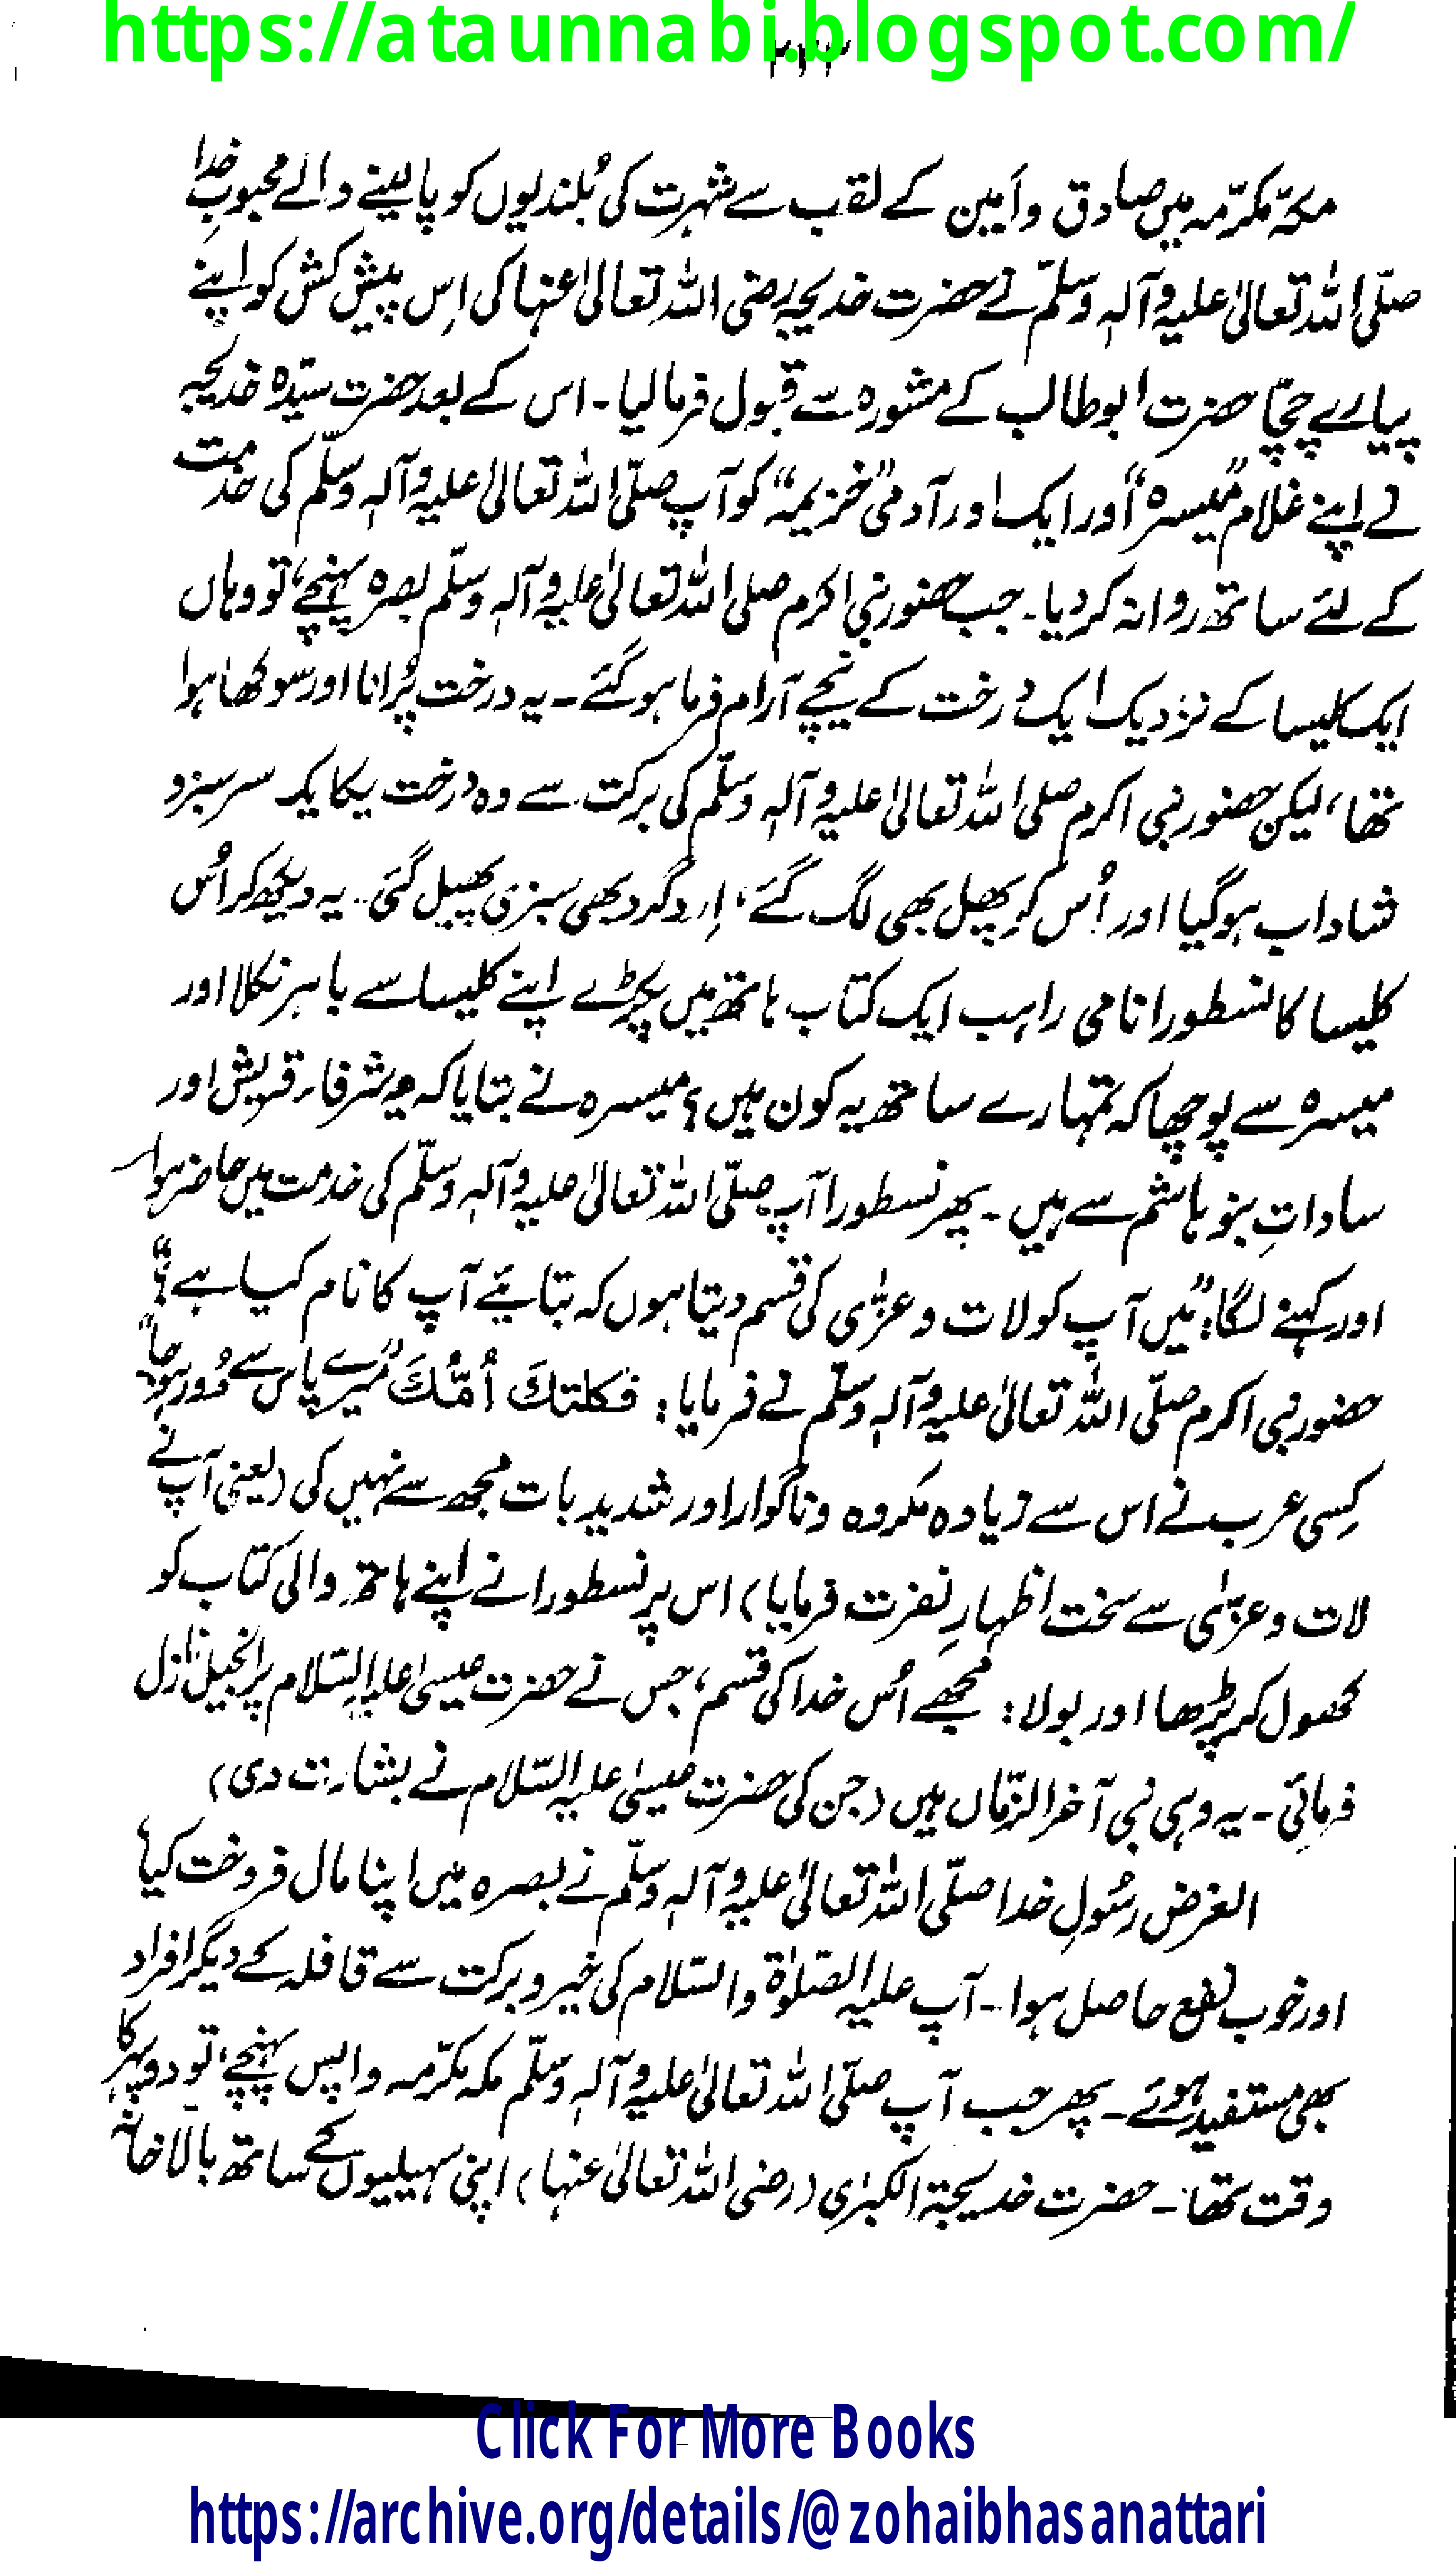 https://ataunnabi.blogspot.com/
مکہ مکرّمہ میں صادق و اَمین کے لقب سے شہرت کی بُلندیوں کو پا لینے والے محبوبِ خدا
صلّی اللہ تعالیٰ علیہ وآلہٖ وسلّم نے حضرت خدیجہ رضی اللہ تعالیٰ عنہا کی اِس پیش کش کو اپنے
پیارے چچّا حضرت ابوطالب کے مشورہ سے قبول فرما لیا۔ اس کے بعد حضرت سیّدہ خدیجہ
نے اپنے غلام ”میسرہ“ اور ایک اور آدمی ”خزیمہ“ کو آپ صلّی اللہ تعالیٰ علیہ وآلہٖ وسلّم کی خدمت
کے لئے ساتھ روانہ کر دیا۔ جب حضور نبی اکرم صلی اللہ تعالیٰ علیہ وآلہٖ وسلّم بصرہ پہنچے، تو وہاں
ایک کلیسا کے نزدیک ایک درخت کے نیچے آرام فرما ہو گئے۔ یہ درخت پُرانا اور سوکھا ہوا
تھا، لیکن حضور نبی اکرم صلی اللہ تعالیٰ علیہ وآلہٖ وسلّم کی برکت سے وہ درخت یکایک سرسبز و
شاداب ہو گیا اور اُس کو پھل بھی لگ گئے، اِرد گرد بھی سبزی پھیل گئی۔ یہ دیکھ کر اُس
کلیسا کا نسطورا نامی راہب ایک کتاب ہاتھ میں پکڑے اپنے کلیسا سے باہر نکلا اور
میسرہ سے پوچھا کہ تمہارے ساتھ یہ کون ہیں؟ میسرہ نے بتایا کہ یہ شرفاءِ قریش اور
ساداتِ بنو ہاشم سے ہیں۔ پھر نسطورا آپ صلّی اللہ تعالیٰ علیہ وآلہٖ وسلّم کی خدمت میں حاضر ہوا
اور کہنے لگا: ”میں آپ کو لات و عزّٰی کی قسم دیتا ہوں کہ بتائیے آپ کا نام کیا ہے؟“
حضور نبی اکرم صلّی اللہ تعالیٰ علیہ وآلہٖ وسلّم نے فرمایا: فکلتكَ اُمُّكَ ”میرے پاس سے دُور ہو جا“
کِسی عرب نے اس سے زیادہ مکروہ و ناگوار اور شدید بات مجھ سے نہیں کی (یعنی آپ نے
لات و عزّٰی سے سخت اظہارِ نفرت فرمایا) اس پر نسطورا نے اپنے ہاتھ والی کتاب کو
کھول کر پڑھا اور بولا: مجھے اُس خدا کی قسم، جس نے حضرت عیسیٰ علیہ السّلام پر انجیل نازل
فرمائی۔ یہ وہی نبی آخر الزّماں ہیں (جن کی حضرت عیسیٰ علیہ السّلام نے بشارت دی)
الغرض رسُولِ خدا صلّی اللہ تعالیٰ علیہ وآلہٖ وسلّم نے بصرہ میں اپنا مال فروخت کیا،
اور خوب نفع حاصل ہوا۔ آپ علیہ الصّلوٰۃ والسّلام کی خیر و برکت سے قافلہ کے دیگر افراد
بھی مستفید ہوئے۔ پھر جب آپ صلّی اللہ تعالیٰ علیہ وآلہٖ وسلّم مکہ مکرّمہ واپس پہنچے، تو دوپہر کا
وقت تھا۔ حضرت خدیجۃ الکبرٰی (رضی اللہ تعالیٰ عنہا) اپنی سہیلیوں کے ساتھ بالاخانہ
Click For More Books
https://archive.org/details/@zohaibhasanattari